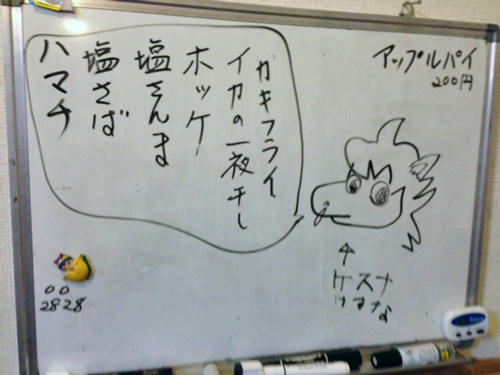 アップルパイ
200円
カキフライ
イカの一夜干し
ホッケ
塩さんま
塩さば
ハマチ
ケスナ
けすな
00
2828